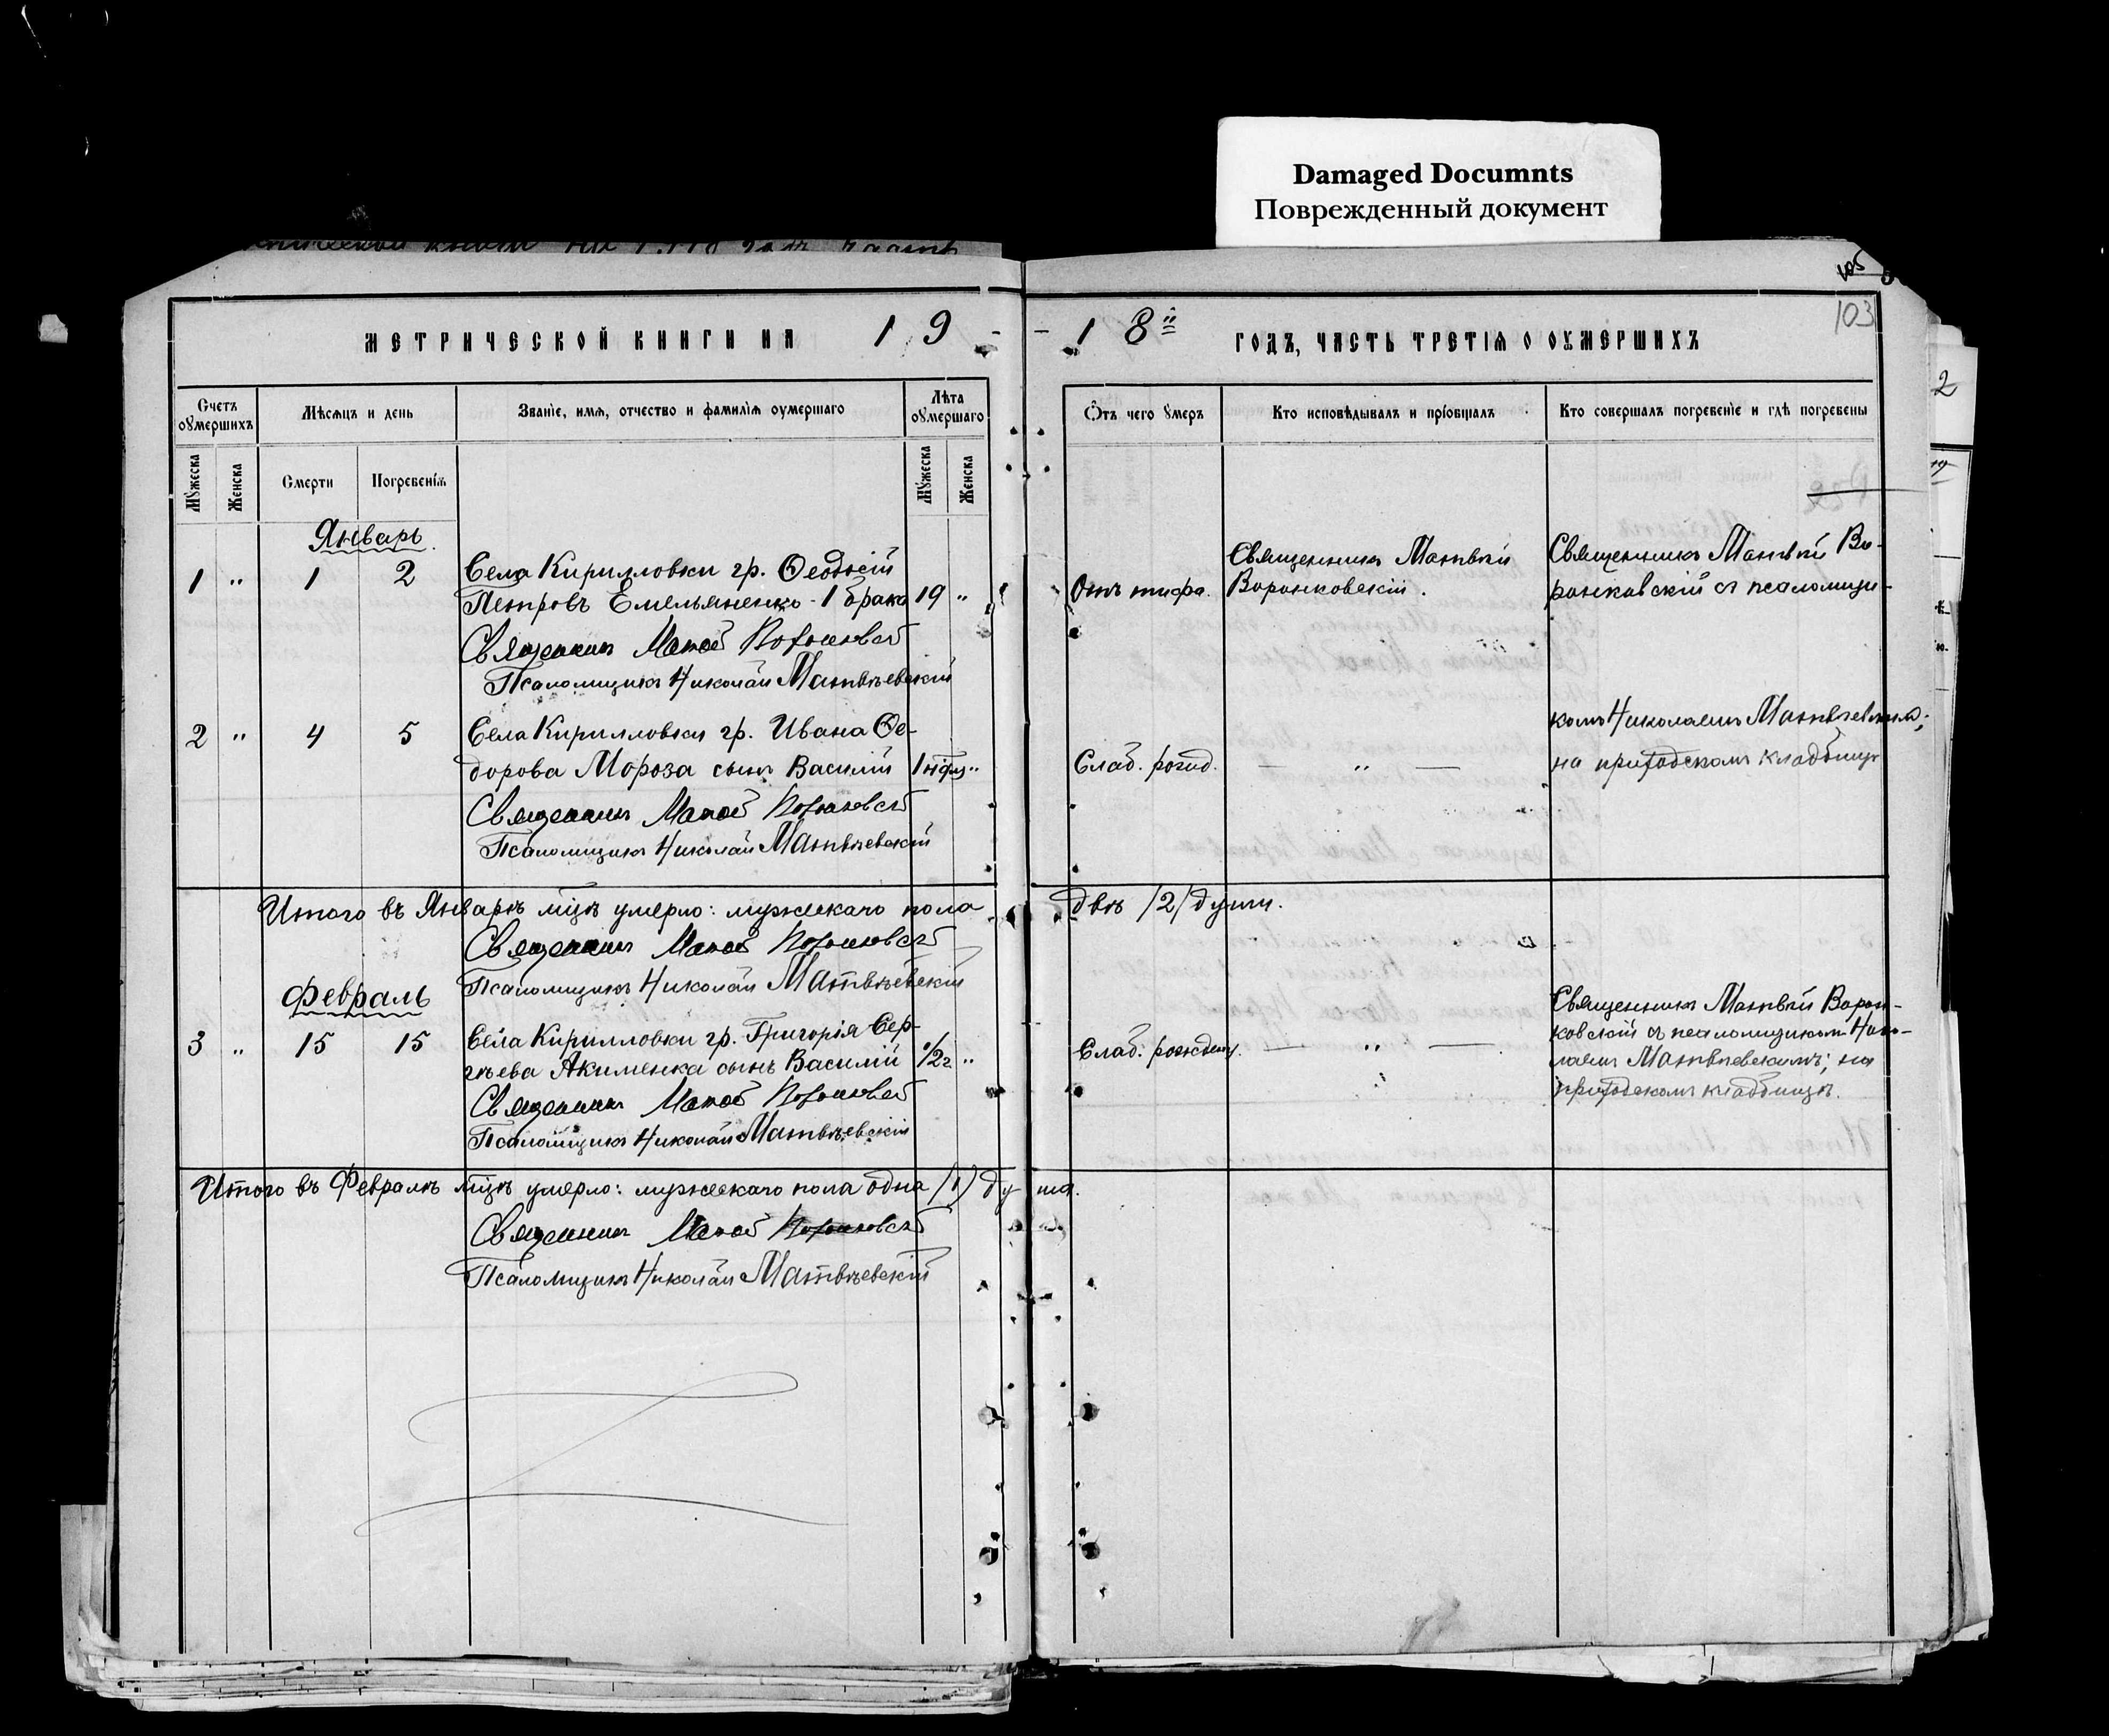 Damaged Documnts
Поврежденный документ
105
103
МЕТРИЧЕСКОЙ КНИГИ НА 19
18й ГОДЪ, ЧАСТЬ ТРЕТІЯ О ОУМЕРШИХЪ
Счетъ оумершихъ
Мѣсяцъ и день
Званіе, имя, отчество и фамилія оумершаго
Лѣта оумершаго
Ѿтъ чего умеръ
Кто исповѣдывалъ и пріобщалъ
Кто совершалъ погребеніе и гдѣ погребены
Мужеска
Женска
Смерти
Погребенія
Мужеска
Женска
Январь
1 " 1 2 Села Кирилловки гр. Ѳеодосій
Петровъ Емельяненко - 1 брака 19 "
Священникъ Матвій Воронковскій
Псаломщикъ Николай Матвѣевскій
Отъ тифа.
Священникъ Матвѣй
Воронковскій.
Священникъ Матвѣй Во-
ронковскій съ псаломщи-
комъ Николаемъ Матвѣевскимъ;
на приходскомъ кладбищѣ
2 " 4 5 Села Кирилловки гр. Ивана Ѳе-
дорова Мороза сынъ Василій "
Священникъ Матвій Воронковскій
Псаломщикъ Николай Матвѣевскій
Слаб. рожд. — " —
Итого въ Январѣ мцѣ умерло: мужескаго пола двѣ /2/ души.
Священникъ Матвій Воронковскій
Псаломщикъ Николай Матвѣевскій
Февраль
3 " 15 15 Села Кирилловки гр. Григорія Сер-
гѣева Акименка сынъ Василій 1/2 г. "
Священникъ Матвій Воронковскій
Псаломщикъ Николай Матвѣевскій
Слаб. рожден. — " —
Священникъ Матвѣй Ворон-
ковскій съ псаломщикомъ Нико-
лаемъ Матвѣевскимъ; на
приходскомъ кладбищѣ.
Итого въ Февралѣ мцѣ умерло: мужескаго пола одна (1) душа.
Священникъ Матвій Воронковскій
Псаломщикъ Николай Матвѣевскій
2